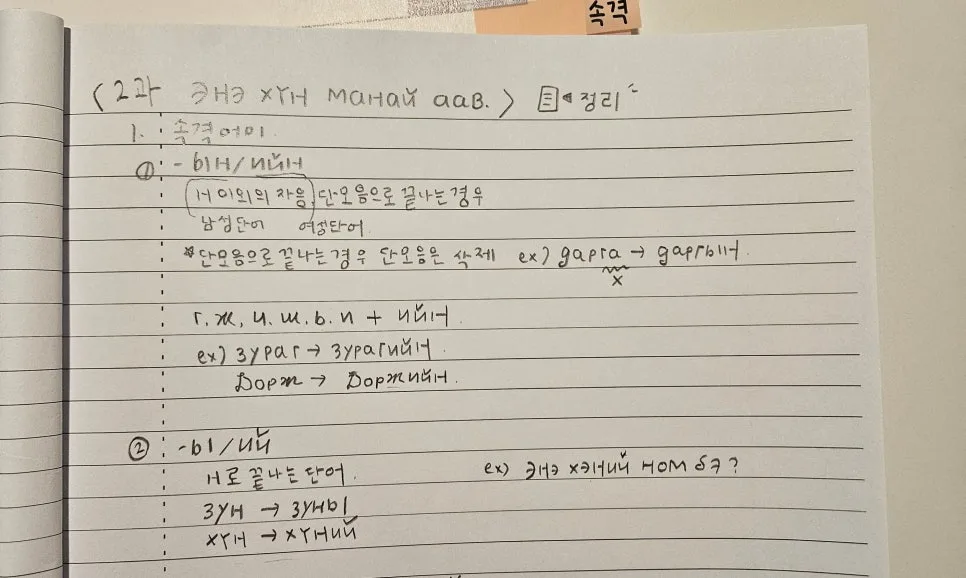 속격
<2과 ЭНЭ ХҮН МАНАЙ ААВ.> 정리~
1. 속격어미
① -ЫН/ИЙН
Н 이외의 자음, 단모음으로 끝나는 경우
남성단어 여성단어
*단모음으로 끝나는 경우 단모음은 삭제 ex) дарга → даргын.
x
г. ж, ч. ш. ь. и + ийн.
ex) зураг → зурагийн.
Дорж → Доржийн.
② -ы/ий
Н로 끝나는 단어. ex) Энэ хэний ном бэ?
зун → зуны
хүн → хүний